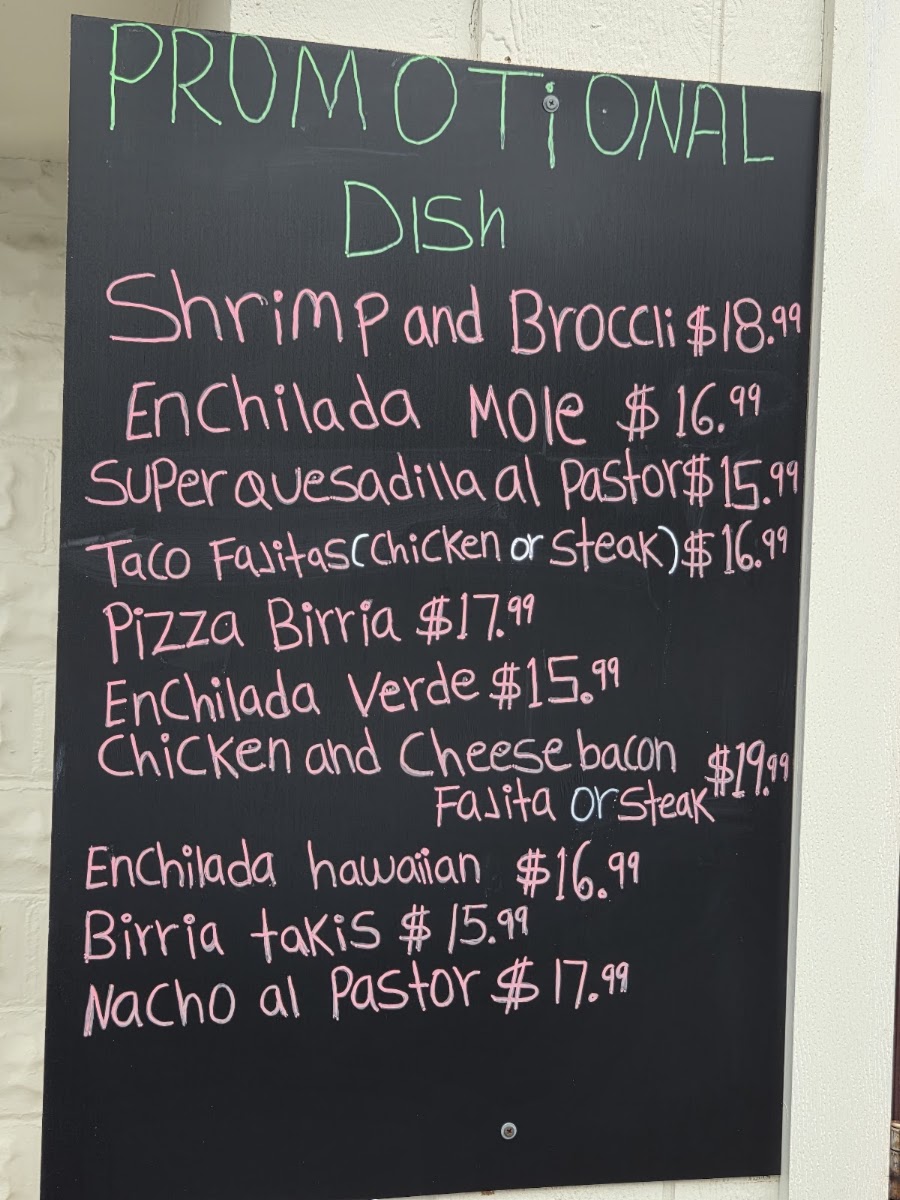 PROMOTiONAL
DISh
Shrimp and Broccli $18.99
Enchilada Mole $16.99
Super quesadilla al Pastor $15.99
Taco Fajitas (Chicken or Steak) $16.99
Pizza Birria $17.99
Enchilada Verde $15.99
Chicken and Cheese bacon $19.99
Fajita or Steak
Enchilada hawaiian $16.99
Birria takis $15.99
Nacho al Pastor $17.99